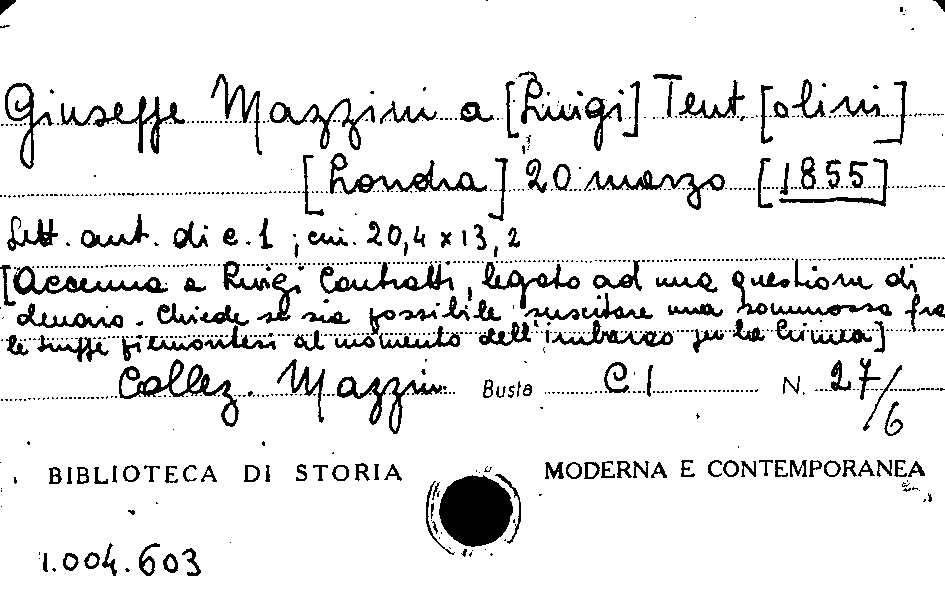 Giuseppe Mazzini a [Luigi] Tent.[olini]
[Londra] 20 marzo [1855]
Lett. aut. di c. 1 ; cm. 20,4 x 13,2
[Accenna a Luigi Contratti, legato ad una questione di
denaro. Chiede se sia possibile suscitare una sommossa fra
le truppe piemontesi al momento dell'imbarco per la Crimea]
Collez. Mazzini Busta C I N. 27/6
BIBLIOTECA DI STORIA MODERNA E CONTEMPORANEA
1.004.603